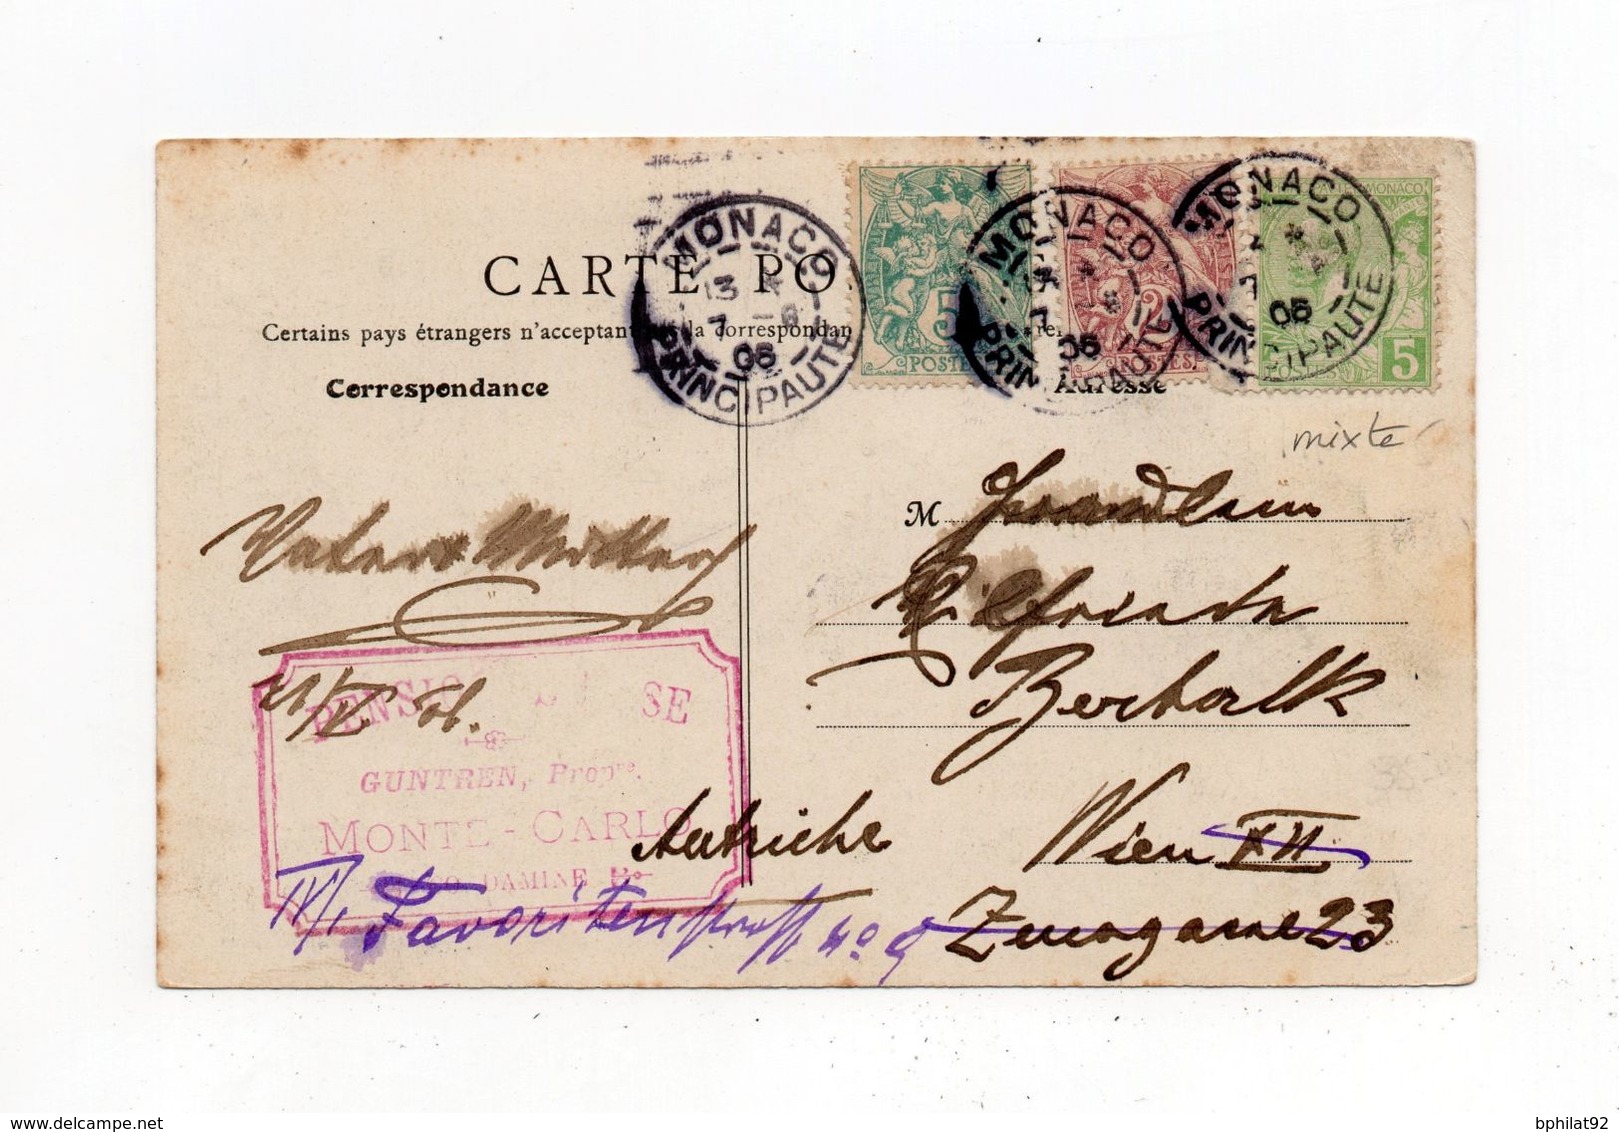 CARTE PO
Certains pays étrangers n'acceptant pas la correspondan
Correspondance
Adresse
MONACO
13
7 -6
06
PRINCIPAUTÉ
MONACO
06
PRINCIPAUTÉ
MONACO
06
PRINCIPAUTÉ
5
POSTES
2
POSTES
MONACO
5
mixte
M
Wilfriede
Berchalk
Vater Mutter
PENSIO SE
GUNTREN, Propre.
MONTE-CARLO
DAMINE
Autriche
Wien XII
IV/1 Favoritenstrasse No 9
23
delcampe.net
bphilat92